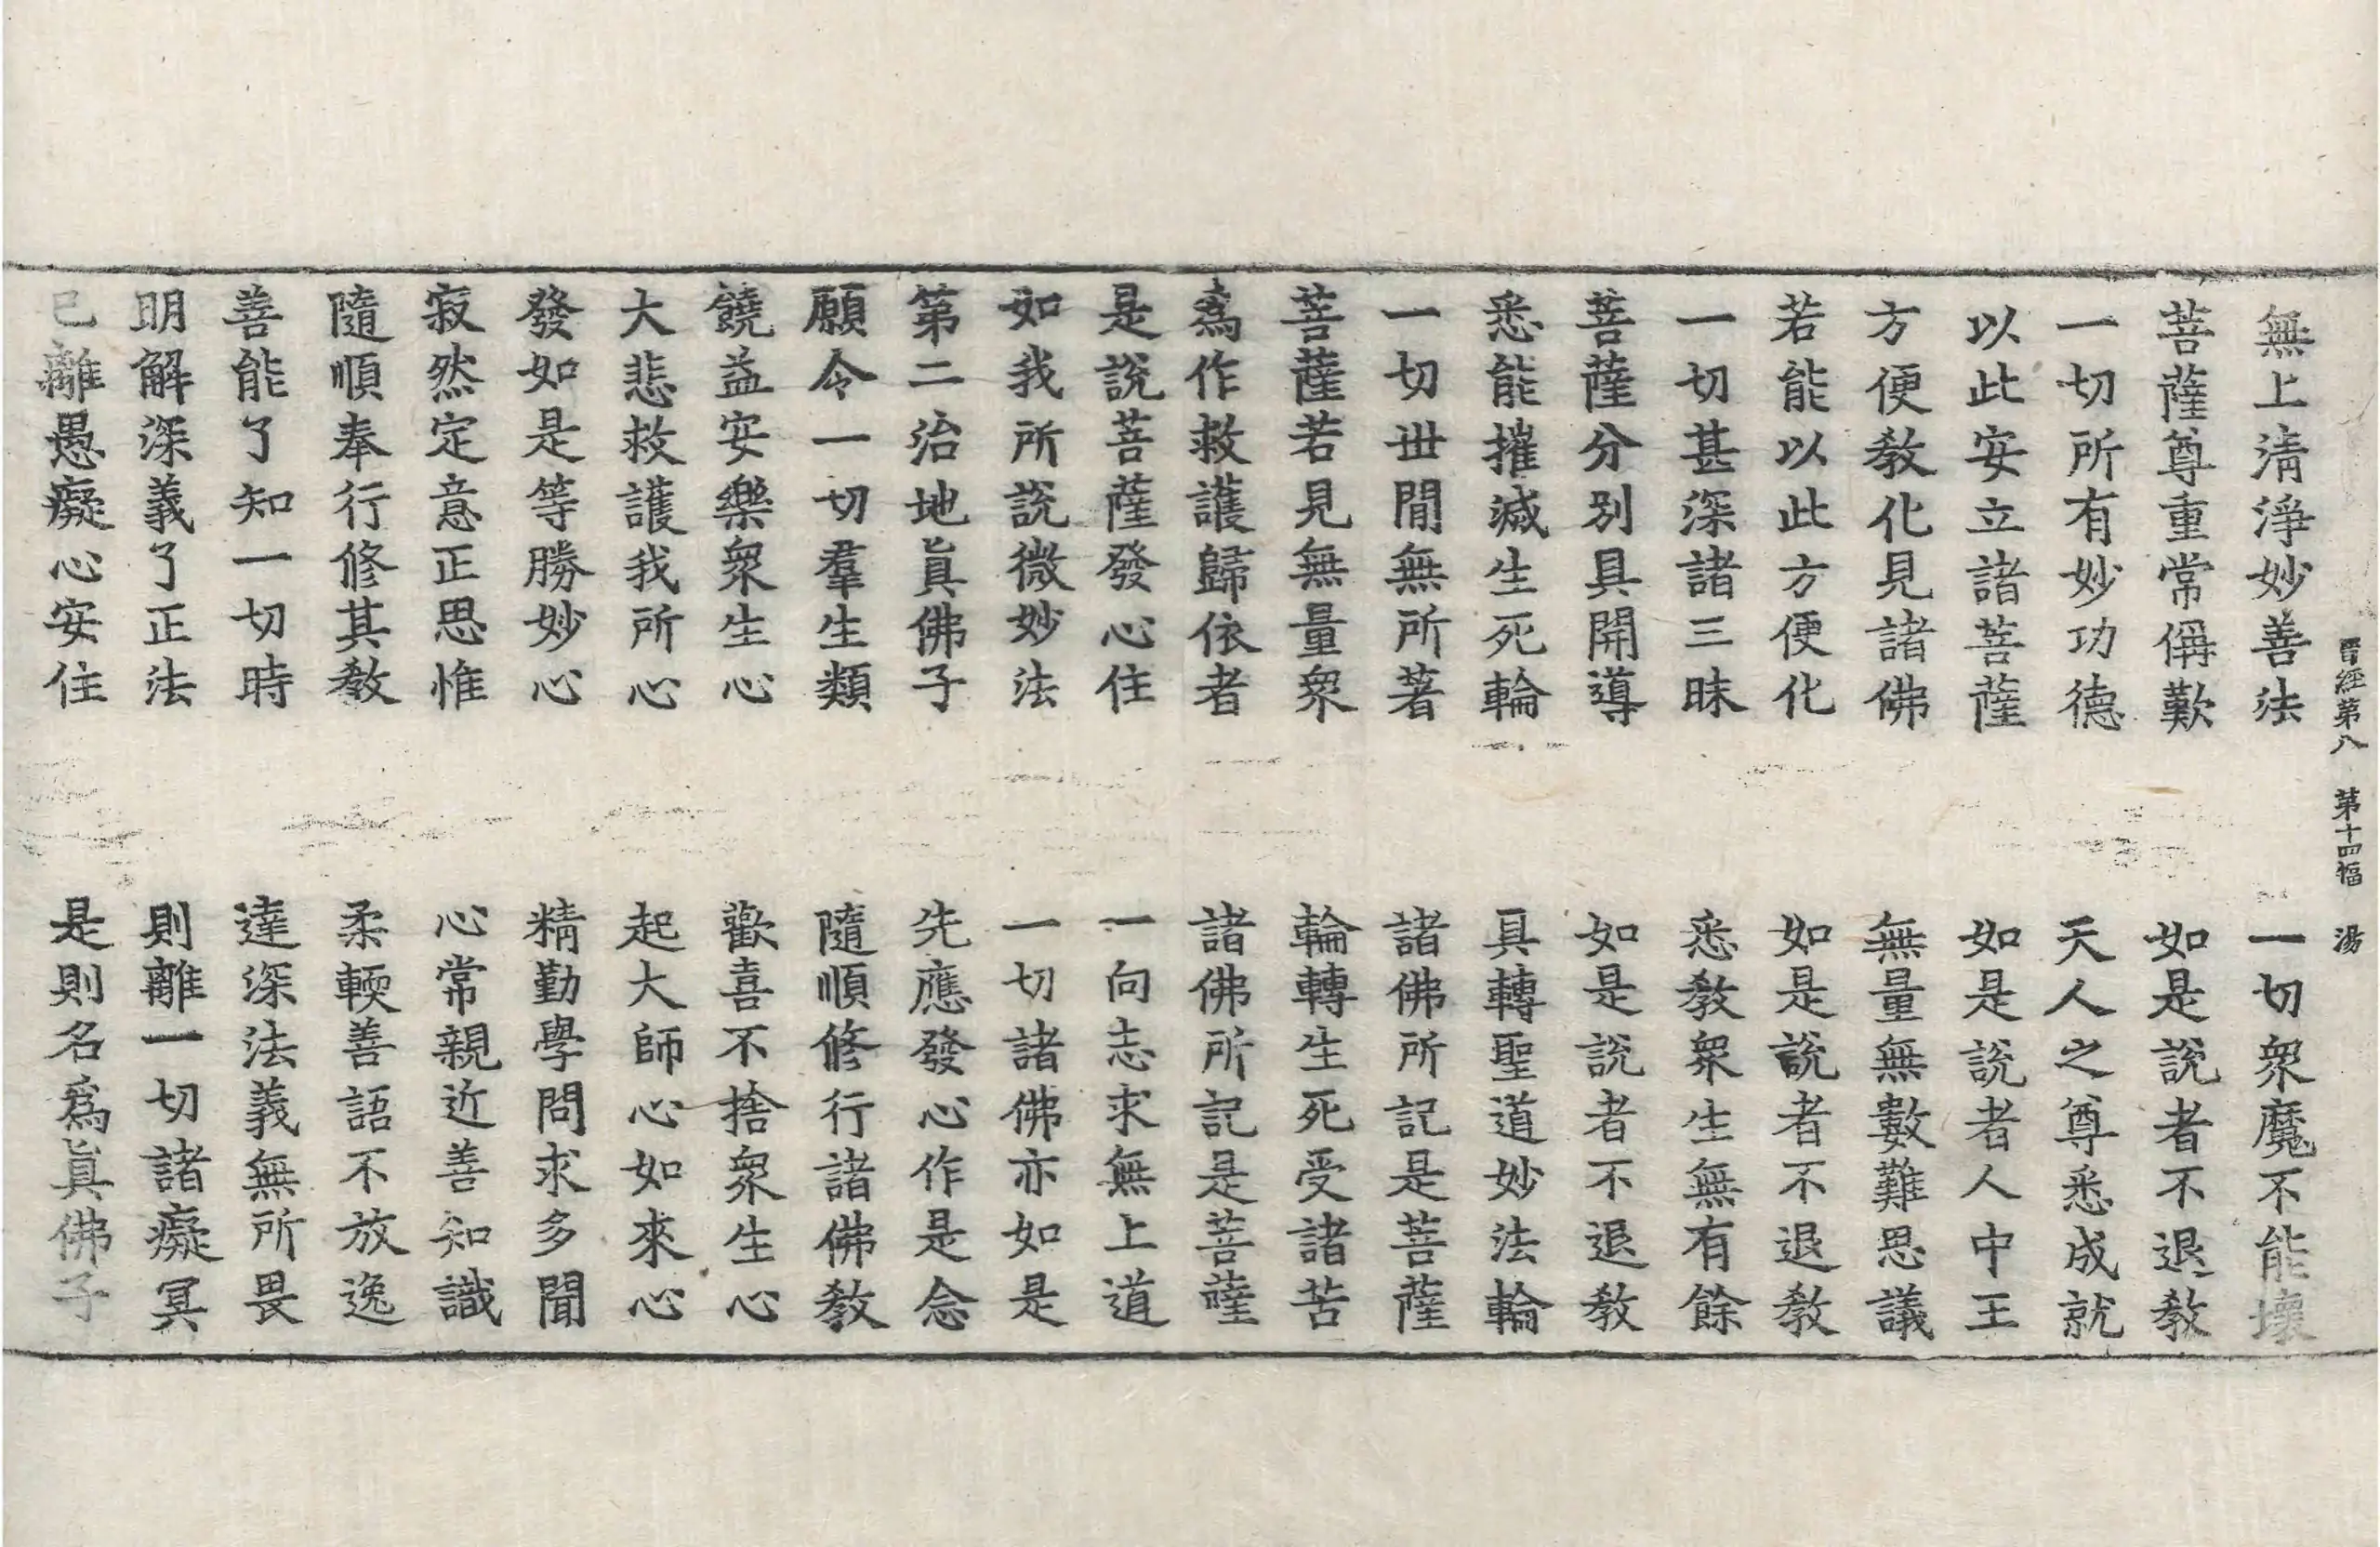 晋經第八 第十四幅 湯
無上清淨妙善法 一切衆魔不能壞
菩薩尊重常偁歎 如是說者不退教
一切所有妙功德 天人之尊悉成就
以此安立諸菩薩 如是說者人中王
方便教化見諸佛 無量無數難思議
若能以此方便化 如是說者不退教
一切甚深諸三昧 悉教衆生無有餘
菩薩分別具開導 如是說者不退教
悉能摧滅生死輪 具轉聖道妙法輪
一切世閒無所著 諸佛所記是菩薩
菩薩若見無量衆 輪轉生死受諸苦
爲作救護歸依者 諸佛所記是菩薩
是說菩薩發心住 一向志求無上道
如我所說微妙法 一切諸佛亦如是
第二治地眞佛子 先應發心作是念
願令一切羣生類 隨順修行諸佛教
饒益安樂衆生心 歡喜不捨衆生心
大悲救護我所心 起大師心如來心
發如是等勝妙心 精勤學問求多聞
寂然定意正思惟 心常親近善知識
隨順奉行修其教 柔輭善語不放逸
善能了知一切時 達深法義無所畏
明解深義了正法 則離一切諸癡冥
已離愚癡心安住 是則名爲眞佛子